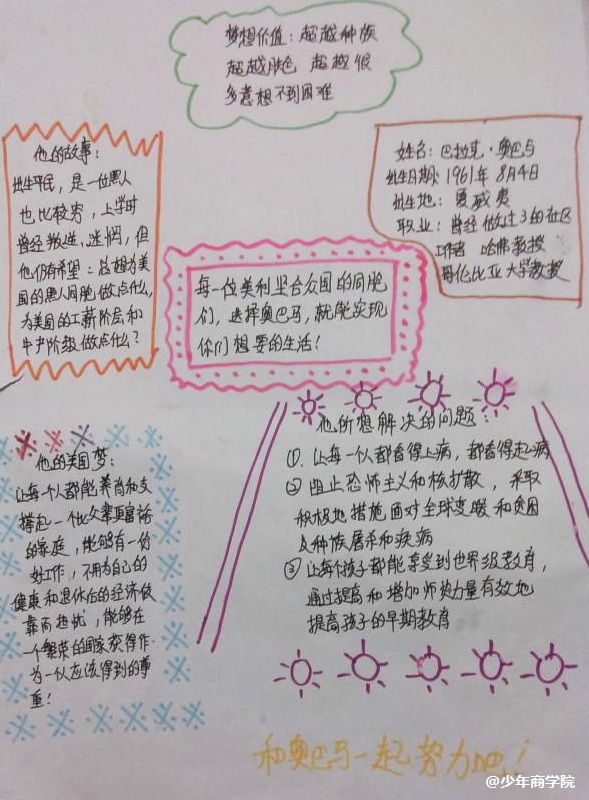 梦想价值：超越种族
超越肤色 超越很
多意想不到困难
他的故事：
出生平民，是一位黑人
也比较穷，上学时
曾经叛逆、迷惘，但
他仍有希望：总想为美
国的黑人同胞做点什么，
为美国的工薪阶层和
中产阶级做点什么？
姓名：巴拉克·奥巴马
出生日期：1961年8月4日
出生地：夏威夷
职业：曾经做过3的社区
工作者 哈佛教授
哥伦比亚大学教授
每一位美利坚合众国的同胞
们，选择奥巴马，就能实现
你们想要的生活！
他所想解决的问题：
①. 让每一个人都看得上病，都看得起病
② 阻止恐怖主义和核扩散，采取
积极地措施面对全球变暖和贫困
以及种族屠杀和疾病
③ 让每个孩子都能享受到世界级教育，
通过提高和增加师资力量有效地
提高孩子的早期教育
他的美国梦：
让每一个人都能养育和支
撑起一个比父辈更富裕
的家庭，能够有一份
好工作，不用为自己的
健康和退休后的经济依
靠而担忧，能够在
一个繁荣的国家获得作
为一个人应该得到的尊
重！
和奥巴马一起努力吧！
@少年商学院